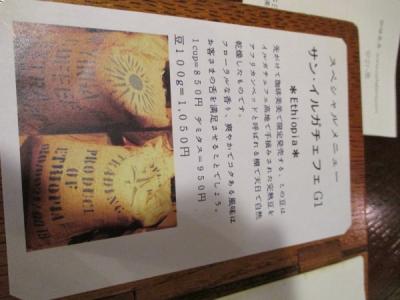 スペシャルメニュー
サン・イルガチェフェ G1
＊Ethiopia＊
先がけて珈琲美美で限定発売する、この豆は
イルガチェフェ高地で手摘みされた完熟豆を
アフリカンベッドと呼ばれる棚で天日で自然
乾燥したものです。
フローラルな香り、爽やかでコクある風味は
お客さまの舌を満足させることでしょう。
1cup＝８５０円 デミタス＝９５０円
豆１００g＝１,０５０円
TRADING
PRODUCT
OF
ETHIOPIA